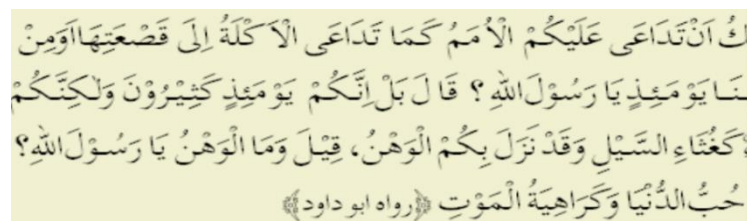 كُ اَنْ تَدَاعَى عَلَيْكُمْ الْاُمَمُ كَمَا تَدَاعَى الْاَكَلَةُ اِلَى قَصْعَتِهَا اَوَمِنْ
يَوْمَئِذٍ يَا رَسُوْلَ اللهِ ؟ قَالَ بَلْ اِنَّكُمْ يَوْمَئِذٍ كَثِيْرُوْنَ وَلٰكِنَّكُمْ
كَغُثَاءِ السَّيْلِ وَقَدْ نَزَلَ بِكُمْ الْوَهْنُ، قِيْلَ وَمَا الْوَهْنُ يَا رَسُوْلَ اللهِ؟
حُبُّ الدُّنْيَا وَكَرَاهِيَةُ الْمَوْتِ ﴿رواه ابو داود﴾